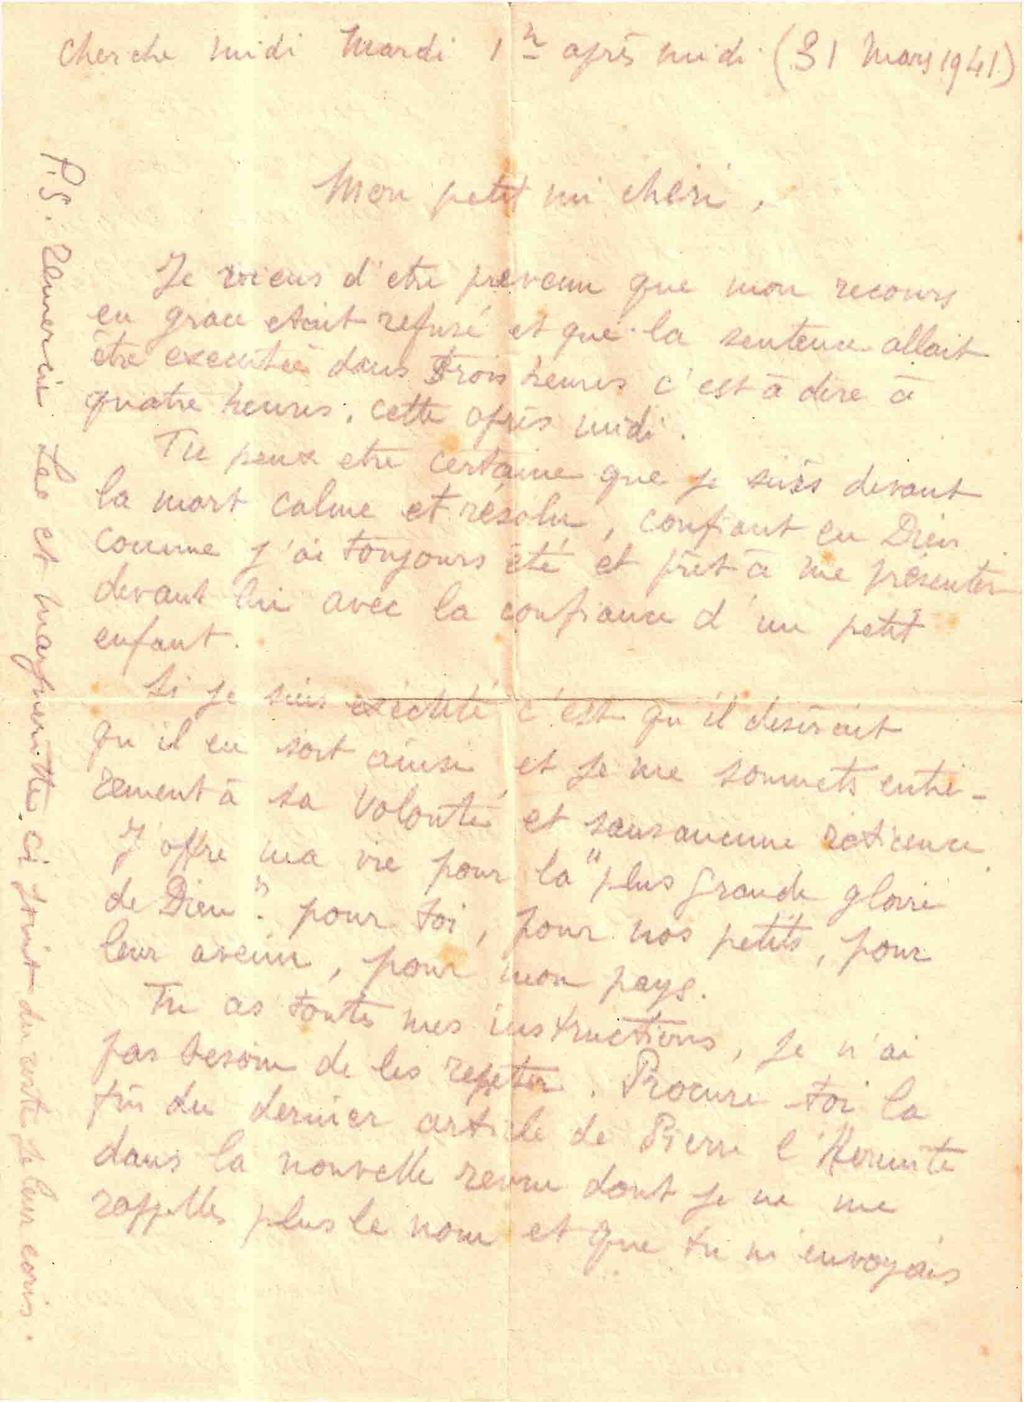 Cherche midi Mardi 1h après midi (31 Mars 1941)
Mon petit mi chéri,
Je viens d'etre prevenu que mon recours
en grace etait refusé et que la sentence allait
être executée dans trois heures c'est à dire à
quatre heures, cette après midi.
Tu peux etre certaine que je suis devant
la mort calme et résolu, confiant en Dieu
comme j'ai toujours été et prêt à me présenter
devant lui avec la confiance d'un petit
enfant.
Si je suis exécuté c'est qu'il desirait
qu'il en soit ainsi et je me soumets entiè-
rement à sa volonté et sans aucune réticence
J'offre ma vie pour la "plus grande gloire
de Dieu". pour toi, pour nos petits, pour
leur avenir, pour mon pays.
Tu as toutes mes instructions, je n'ai
pas besoin de les repeter. Procure toi la
fin du dernier article de Pierre l'Hermite
dans la nouvelle revue dont je ne me
rappelles plus le nom et que tu m'envoyais
P.S. Remercie Leo et Marguerite. Ci joint du reste je leur ecris.